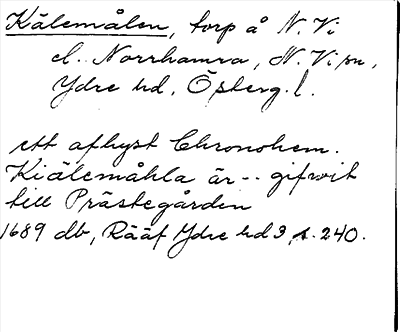 Kälemålen, torp å N. Vi
el. Norrhamra, N. Vi sn,
Ydre hd, Östergl.
ett afhyst Chronohem.
Kiälemåhla är -- gifwit
till Prästegården
1689 db, Rääf Ydre hd 3, s. 240.